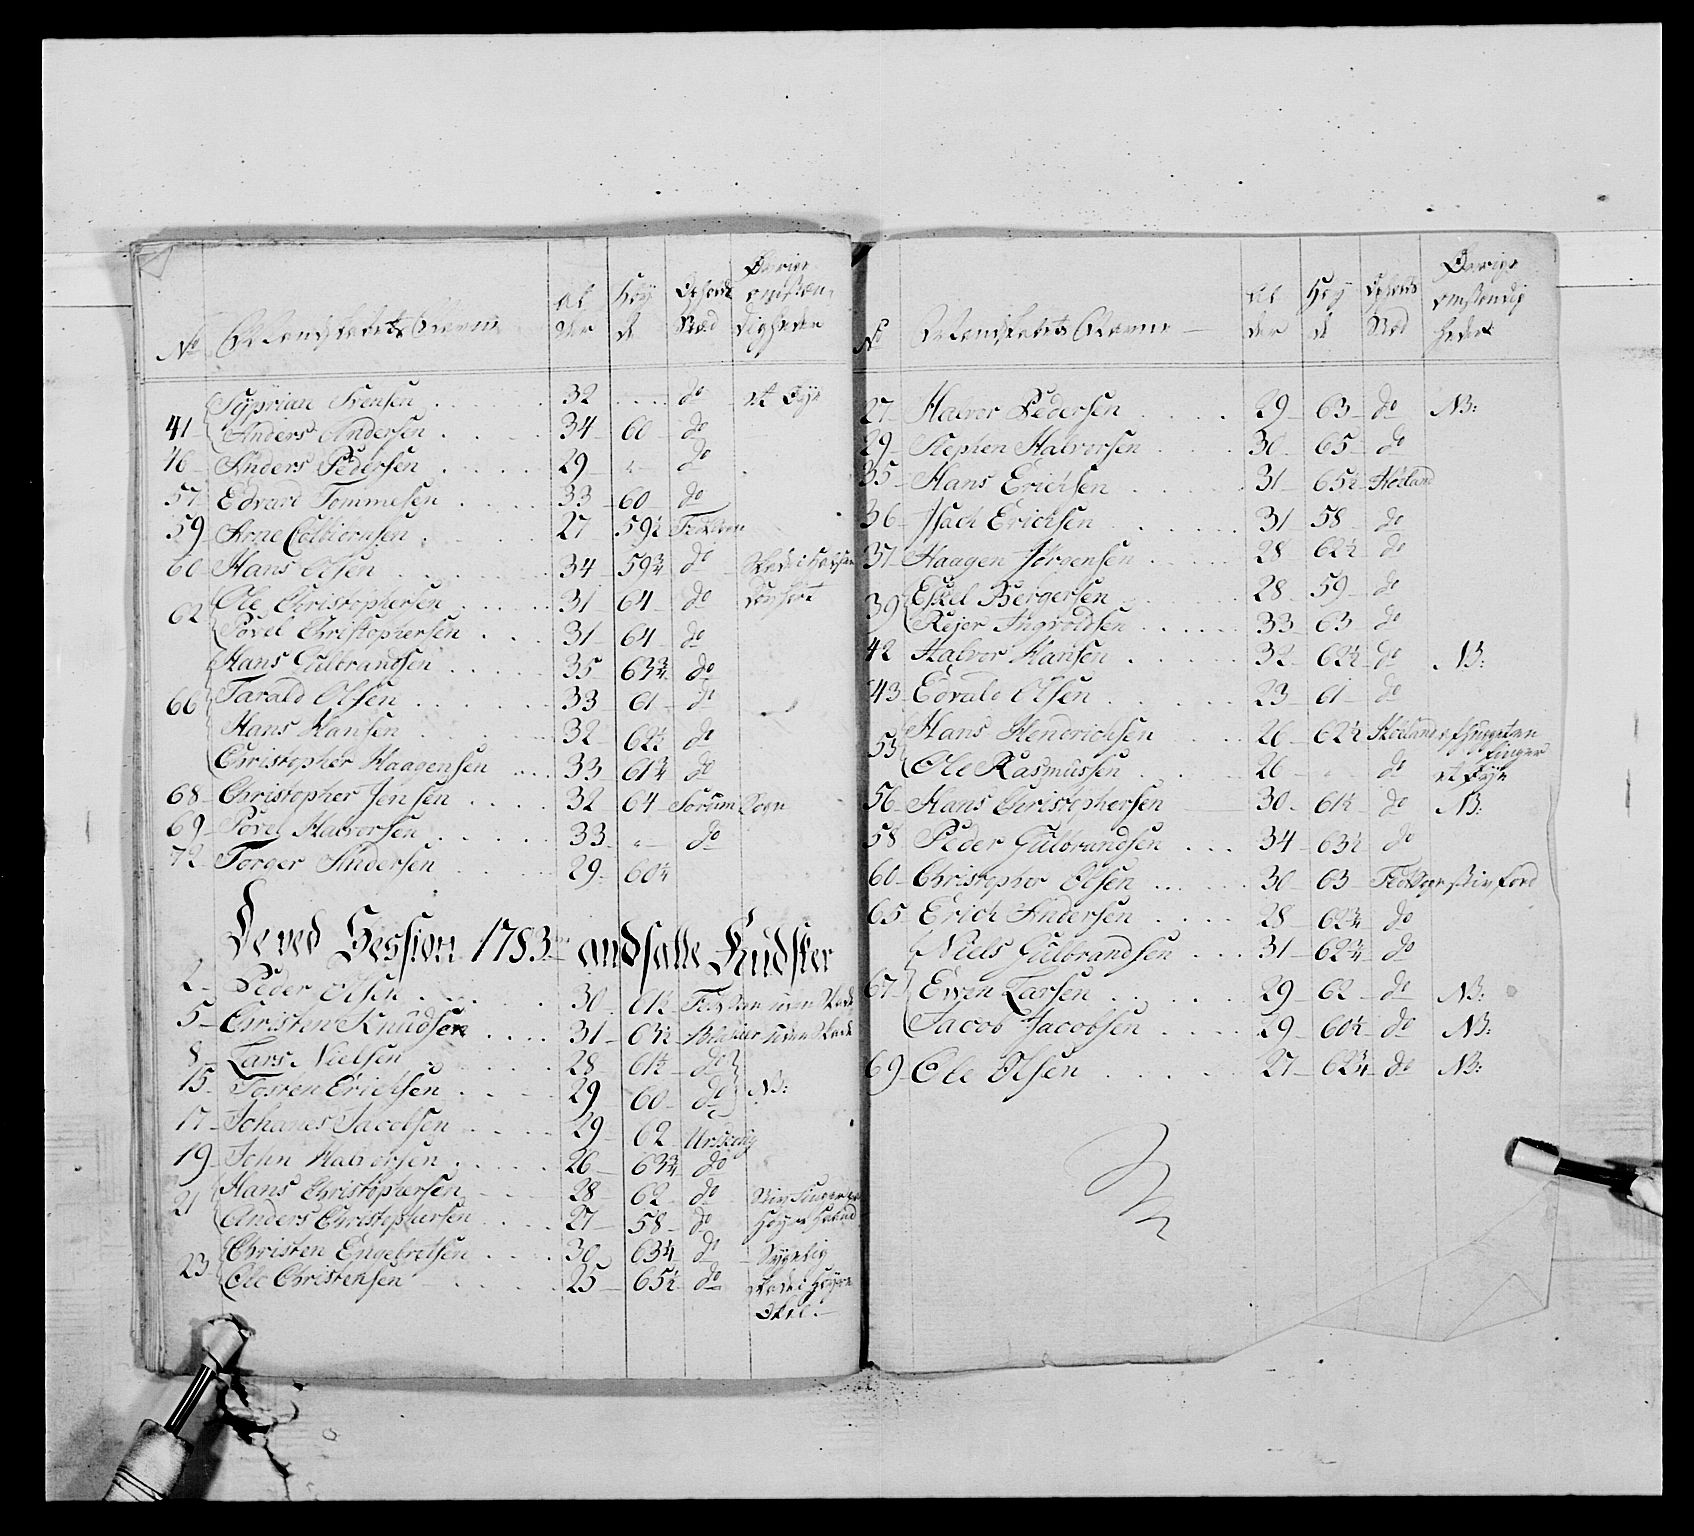 No Mandskabets Navne Al der Høy de Opholds Stæd Øvrige omstæn digheder
Syprian Svensen 32 do et Øye
41 Anders Andersen 34 60 do
46 Anders Pedersen 29 " do
57 Edvard Tommesen 33 60 do
59 Arne Colbiørnsen 27 59½
60 Hans Olsen 34 59¾ do
62 Ole Christophersen 31 64 do
Povel Christophersen 31 64 do
Hans Gulbrandsen 35 63¾ do
66 Tarald Olsen 33 61 do
Hans Hansen 32 62½ do
Christopher Haagensen 33 61¾ do
68 Christopher Jensen 32 64 Sørum Sogn
69 Povel Halvorsen 33 " do
72 Torger Andersen 29 60¼
De ved Session 1783 andsatte Kudsker
2 Peder Olsen 30 61½
5 Christen Knudsen 31 63½
8 Lars Nielsen 28 61½ do
15 Tosten Erichsen 29 60 do NB:
17 Johanes Jacobsen 29 62 Urschoug
19 John Halvorsen 26 63¾ do
21 Hans Christophersen 28 62 do
Anders Christophersen 27 58 do
23 Christen Engebretsen 30 63¼ do Sygelig
Ole Christensen 25 65½ do
No Mandskabets Navne Al der Høy de Opholds Stæd Øvrige omstændig heder
27 Halvor Pedersen 29 63 do NB:
29 Stephen Halvorsen 30 65 do
35 Hans Erichsen 31 65½ Høland
36 Isach Erichsen 31 58 do
37 Haagen Jørgensen 28 62½ do
39 Eskel Bergersen 28 59 do
Rejer Ingvoldsen 33 63 do
42 Halvor Hansen 32 62½ do NB:
43 Edvald Olsen 23 61 do
53 Hans Hendrichsen 26 62½ Høland finger
Ole Rasmussen 26 " do et Øye
56 Hans Christophersen 30 61½ do NB:
58 Peder Gulbrandsen 34 63½ do
60 Christopher Olsen 30 63
65 Erich Andersen 28 62¾ do
Niels Gulbrandsen 31 62¾ do
67 Even Larsen 29 62 do NB:
Jacob Jacobsen 29 60½ do NB:
69 Ole Olsen 27 62¾ do NB: